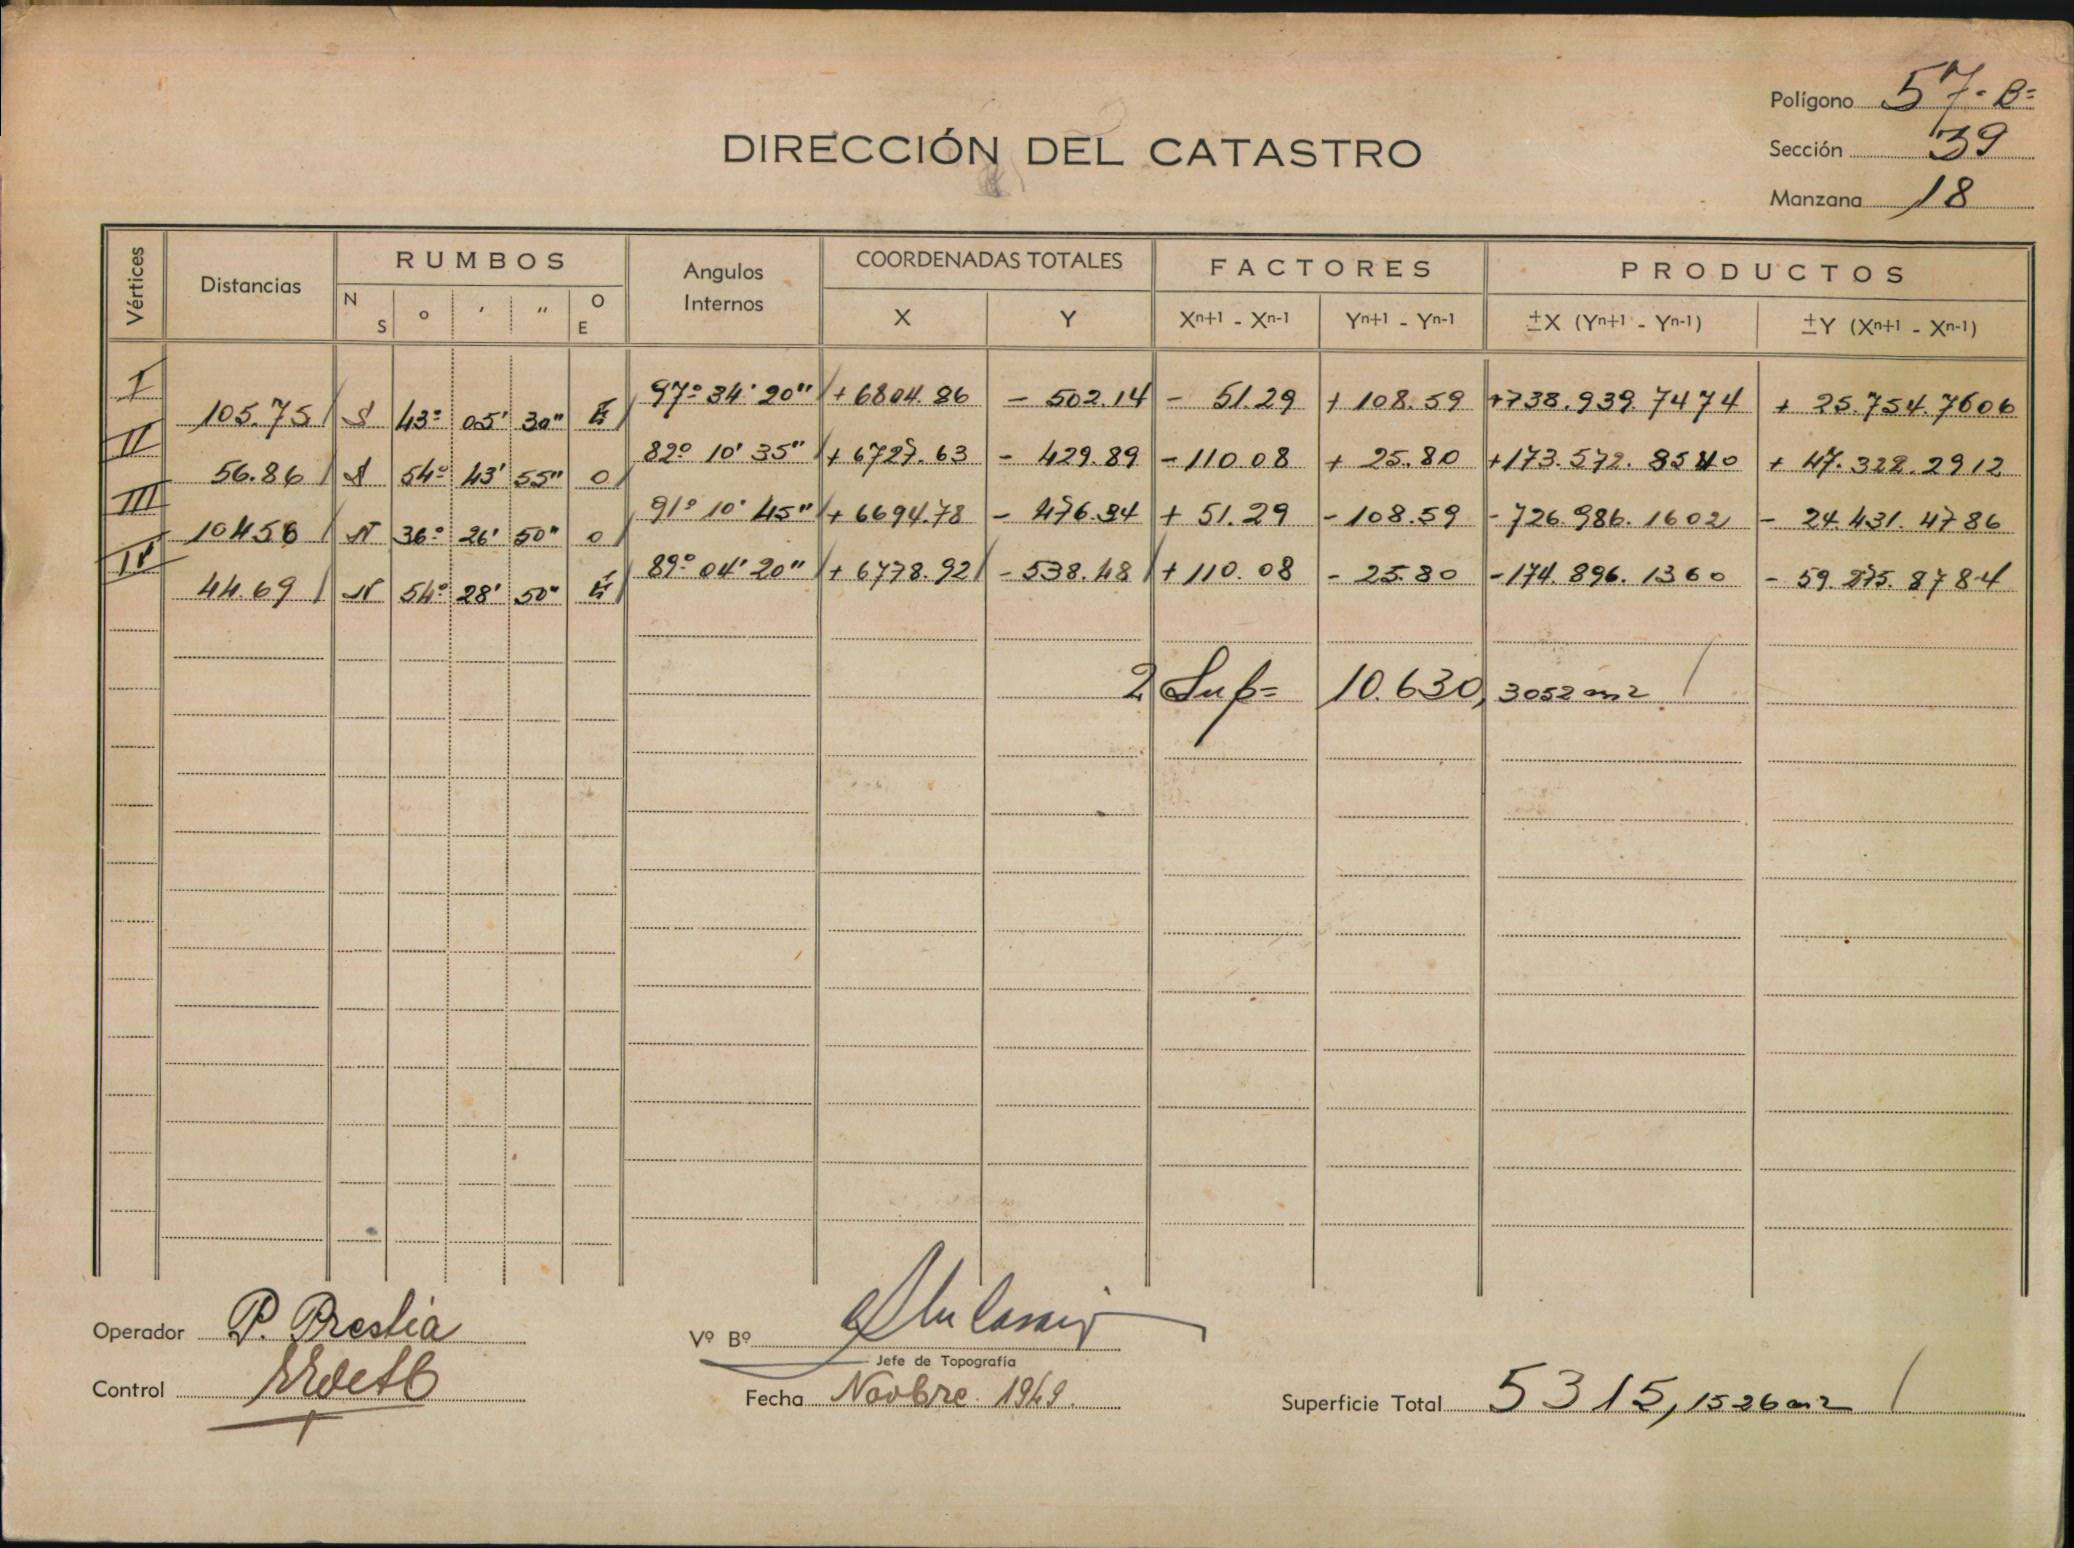 Polígono 57-B=
DIRECCIÓN DEL CATASTRO
Sección 39
Manzana 18
Vértices Distancias RUMBOS Angulos Internos COORDENADAS TOTALES FACTORES PRODUCTOS
N S ° ' " O E X Y Xn+1 - Xn-1 Yn+1 - Yn-1 ±X (Yn+1 - Yn-1) ±Y (Xn+1 - Xn-1)
I 97º 34' 20" +6804.86 - 502.14 - 51.29 + 108.59 +738.939.7474 + 25.754.7606
105.75 S 43º 05' 30" E
II 82º 10' 35" + 6727.63 - 429.89 - 110.08 + 25.80 +173.572.8540 + 47.322.2912
56.86 S 54º 43' 55" O
III 91º 10' 45" + 6694.78 - 476.34 + 51.29 - 108.59 -726.986.1602 - 24.431.4786
104.56 N 36º 26' 50" O
IV 89º 04' 20" + 6778.92 - 538.48 + 110.08 - 25.80 -174.896.1360 - 59.275.8784
44.69 N 54º 28' 50" E
2 Sup= 10.630,3052 m2
Operador P. Prestia
Vº Bº
Jefe de Topografía
Control
Fecha Novbre 1949.
Superficie Total 5315,1526 m2